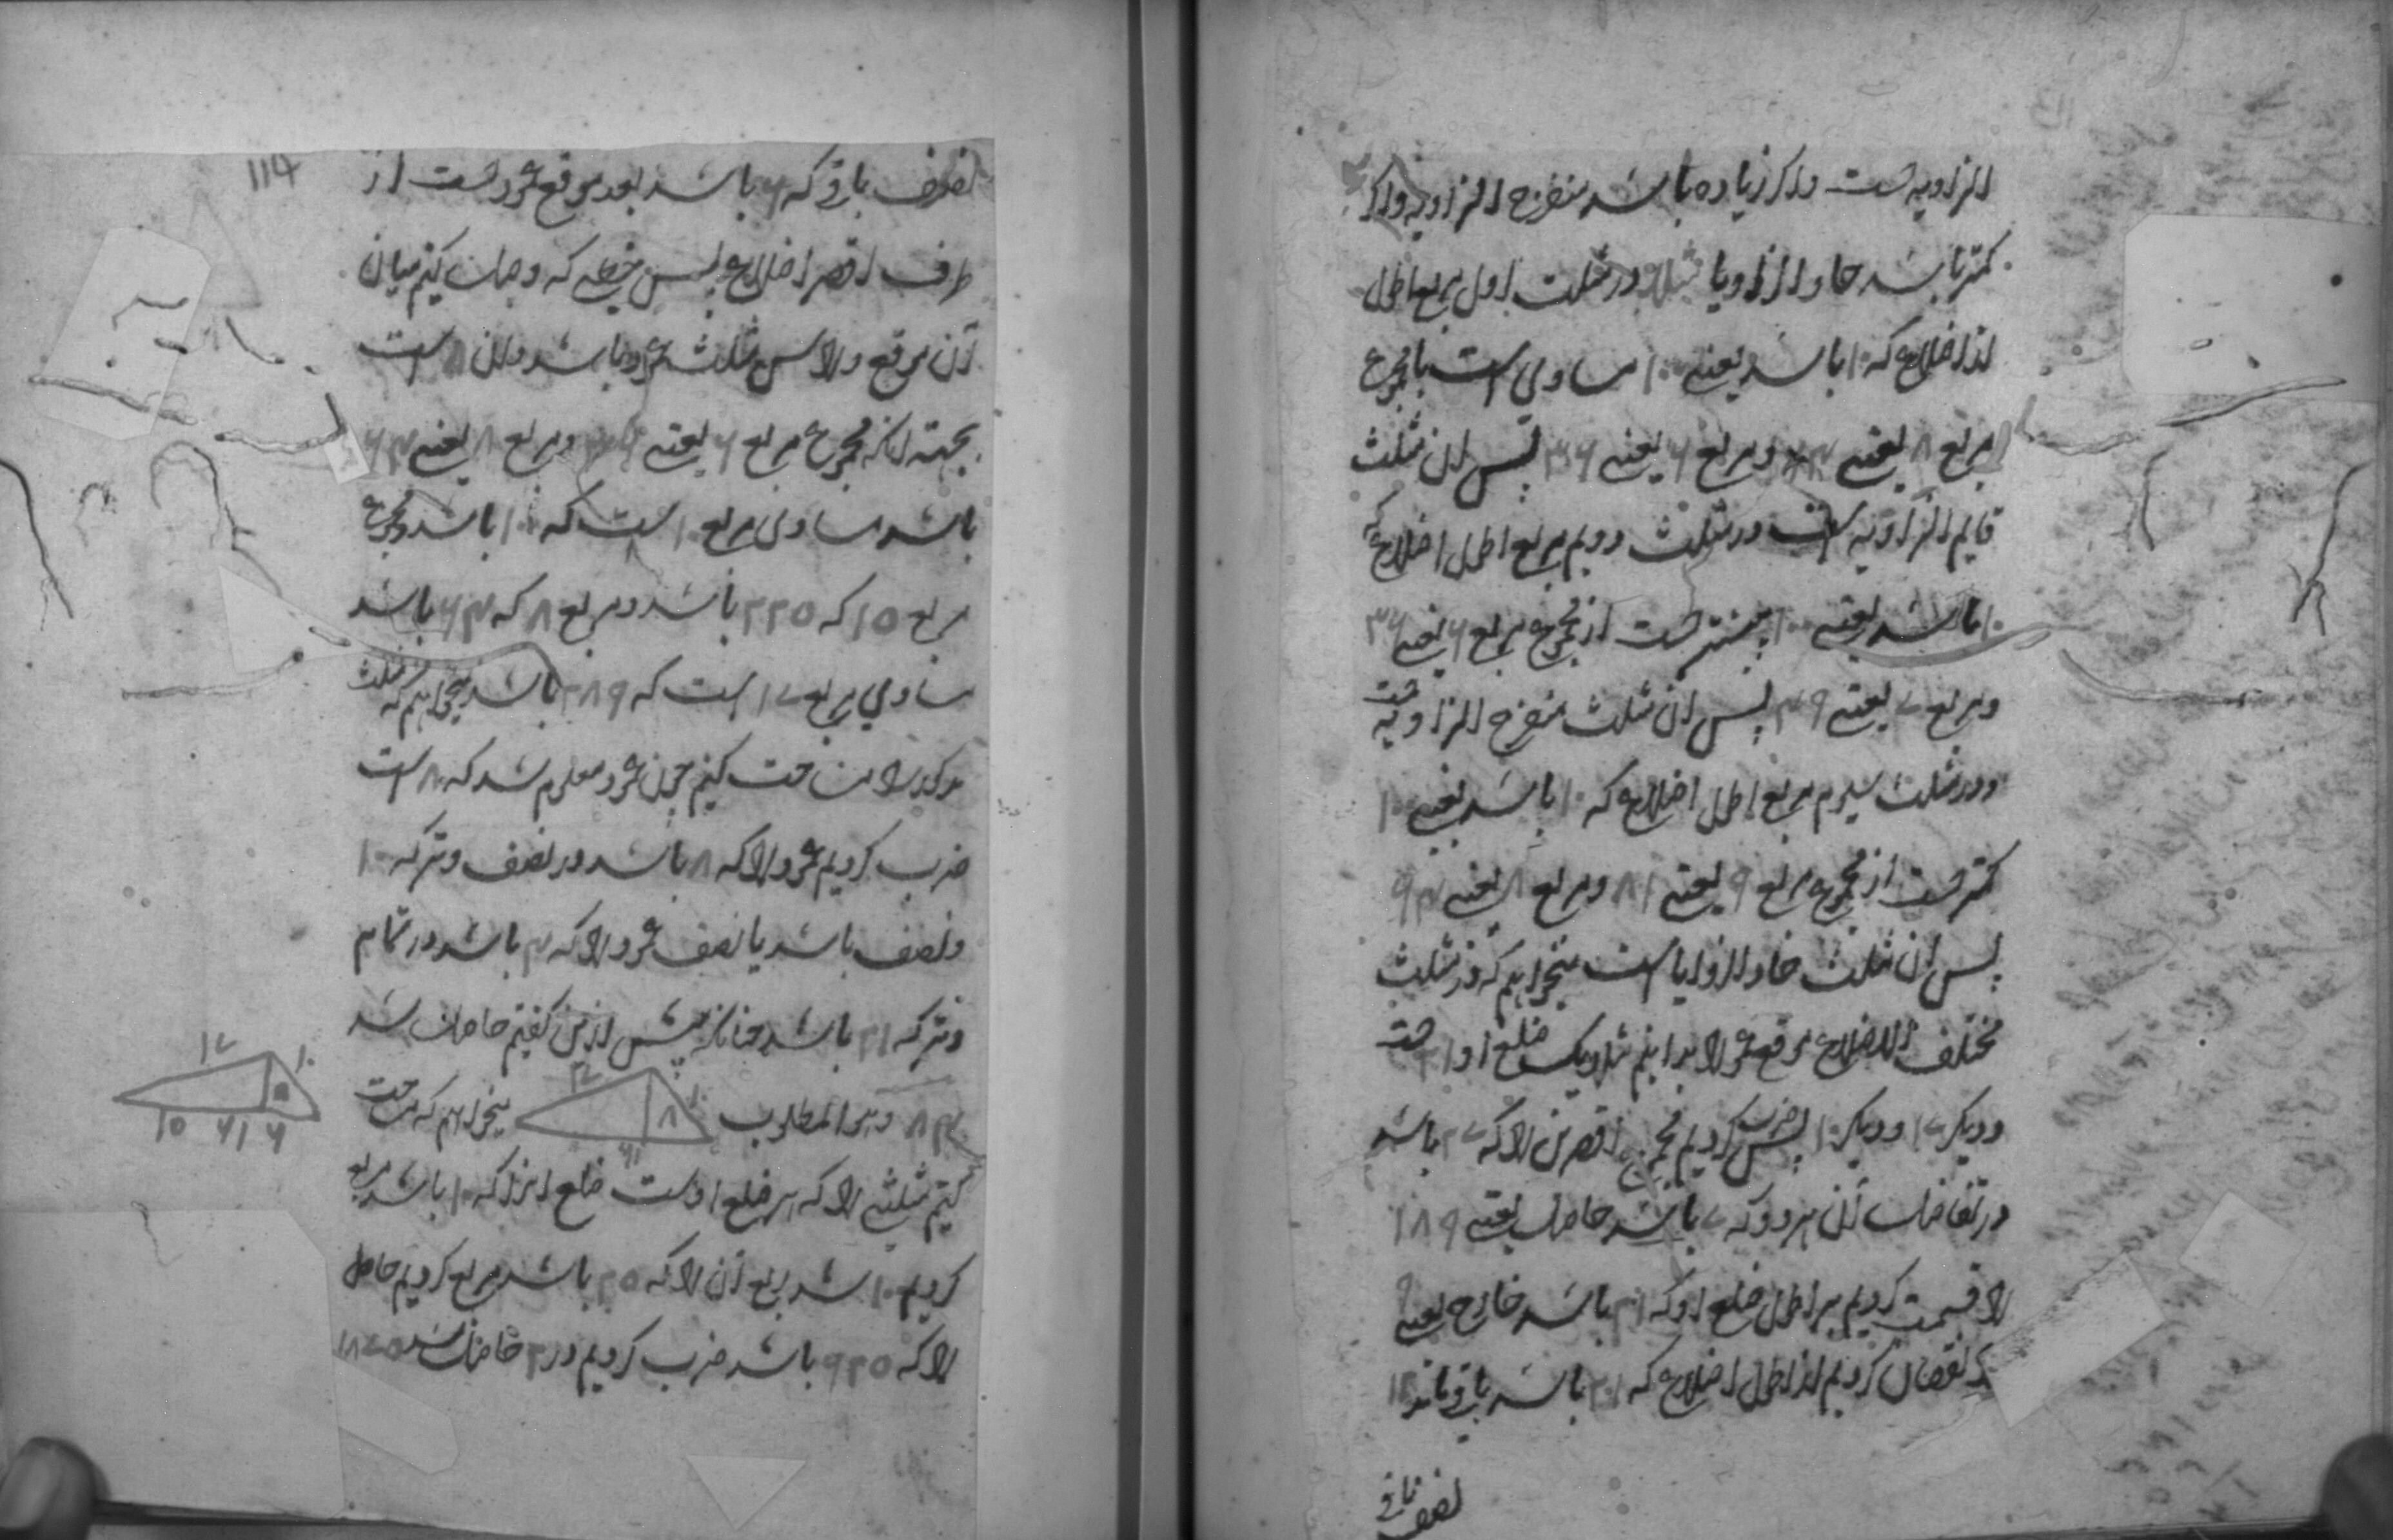 الزاویه است و اگر زیاده باشد منفرج الزاویه و اگر
کمتر باشد حاد الزوایا مثلا در مثلث اول مربع اطول
اضلاع که ۱۰ باشد یعنی ۱۰۰ مساوی است با مجموع
مربع ۸ یعنی ۶۴ و مربع ۶ یعنی ۳۶ پس این مثلث
قایم الزاویه است و در مثلث دویم مربع اطول اضلاع که
۱۰ باشد یعنی ۱۰۰ بیشتر است از مجموع مربع ۶ یعنی ۳۶
و مربع ۷ یعنی ۴۹ پس این مثلث منفرج الزاویه است
و در مثلث سیوم مربع اطول اضلاع که ۱۰ باشد یعنی ۱۰۰
کمتر است از مجموع مربع ۹ یعنی ۸۱ و مربع ۸ یعنی ۶۴
پس این مثلث حاد الزوایا است میخواهیم که در مثلث
مختلف الاضلاع موقع عمود را بدانیم مثلا یک ضلع او ۲۱ است
و دیگر ۱۷ و دیگر ۱۰ پس ضرب کردیم مجموع اقصرین را که ۲۷ باشد
در تفاضل آن هر دو که ۷ باشد حاصل یعنی ۱۸۹
را قسمت کردیم بر اطول ضلع او که ۲۱ باشد خارج یعنی ۹
نقصان کردیم از اطول اضلاع که ۲۱ باشد باقی ماند ۱۲
نصف باقی
۱۱۴
نصف باقی که ۶ باشد بعد موقع عمود است از
طرف اقصر اضلاع پس خطی که وصل کنیم میان
آن موقع و راس مثلث عمود باشد و آن ۸ است
بجهته آنکه مجموع مربع ۶ یعنی ۳۶ و مربع ۸ یعنی ۶۴
باشد مساوی مربع ۱۰ است که ۱۰۰ باشد و مجموع
مربع ۱۵ که ۲۲۵ باشد و مربع ۸ که ۶۴ باشد
مساوی مربع ۱۷ است که ۲۸۹ باشد میخواهیم که مثلث
مذکور را مساحت کنیم چون عمود معلوم شد که ۸ است
ضرب کردیم عمود را که ۸ باشد در نصف وتر که ۱۰
و نصف باشد یا نصف عمود را که ۴ باشد در تمام
وتر که ۲۱ باشد چنانکه پیش ازین گفتیم حاصل شد
۸۴ و هو المطلوب میخواهیم که مساحت
۱۷ ۱۰ ۸ ۲۱
۱۷ ۱۰ ۸ ۱۵ ۲۱ ۶
کنیم مثلثی را که هر ضلع اوست ضلع او را که ۱۰ باشد مربع
کردیم ۱۰۰ شد ربع آن را که ۲۵ باشد مربع کردیم حاصل
را که ۶۲۵ باشد ضرب کردیم در ۳ حاصل شد ۱۸۷۵